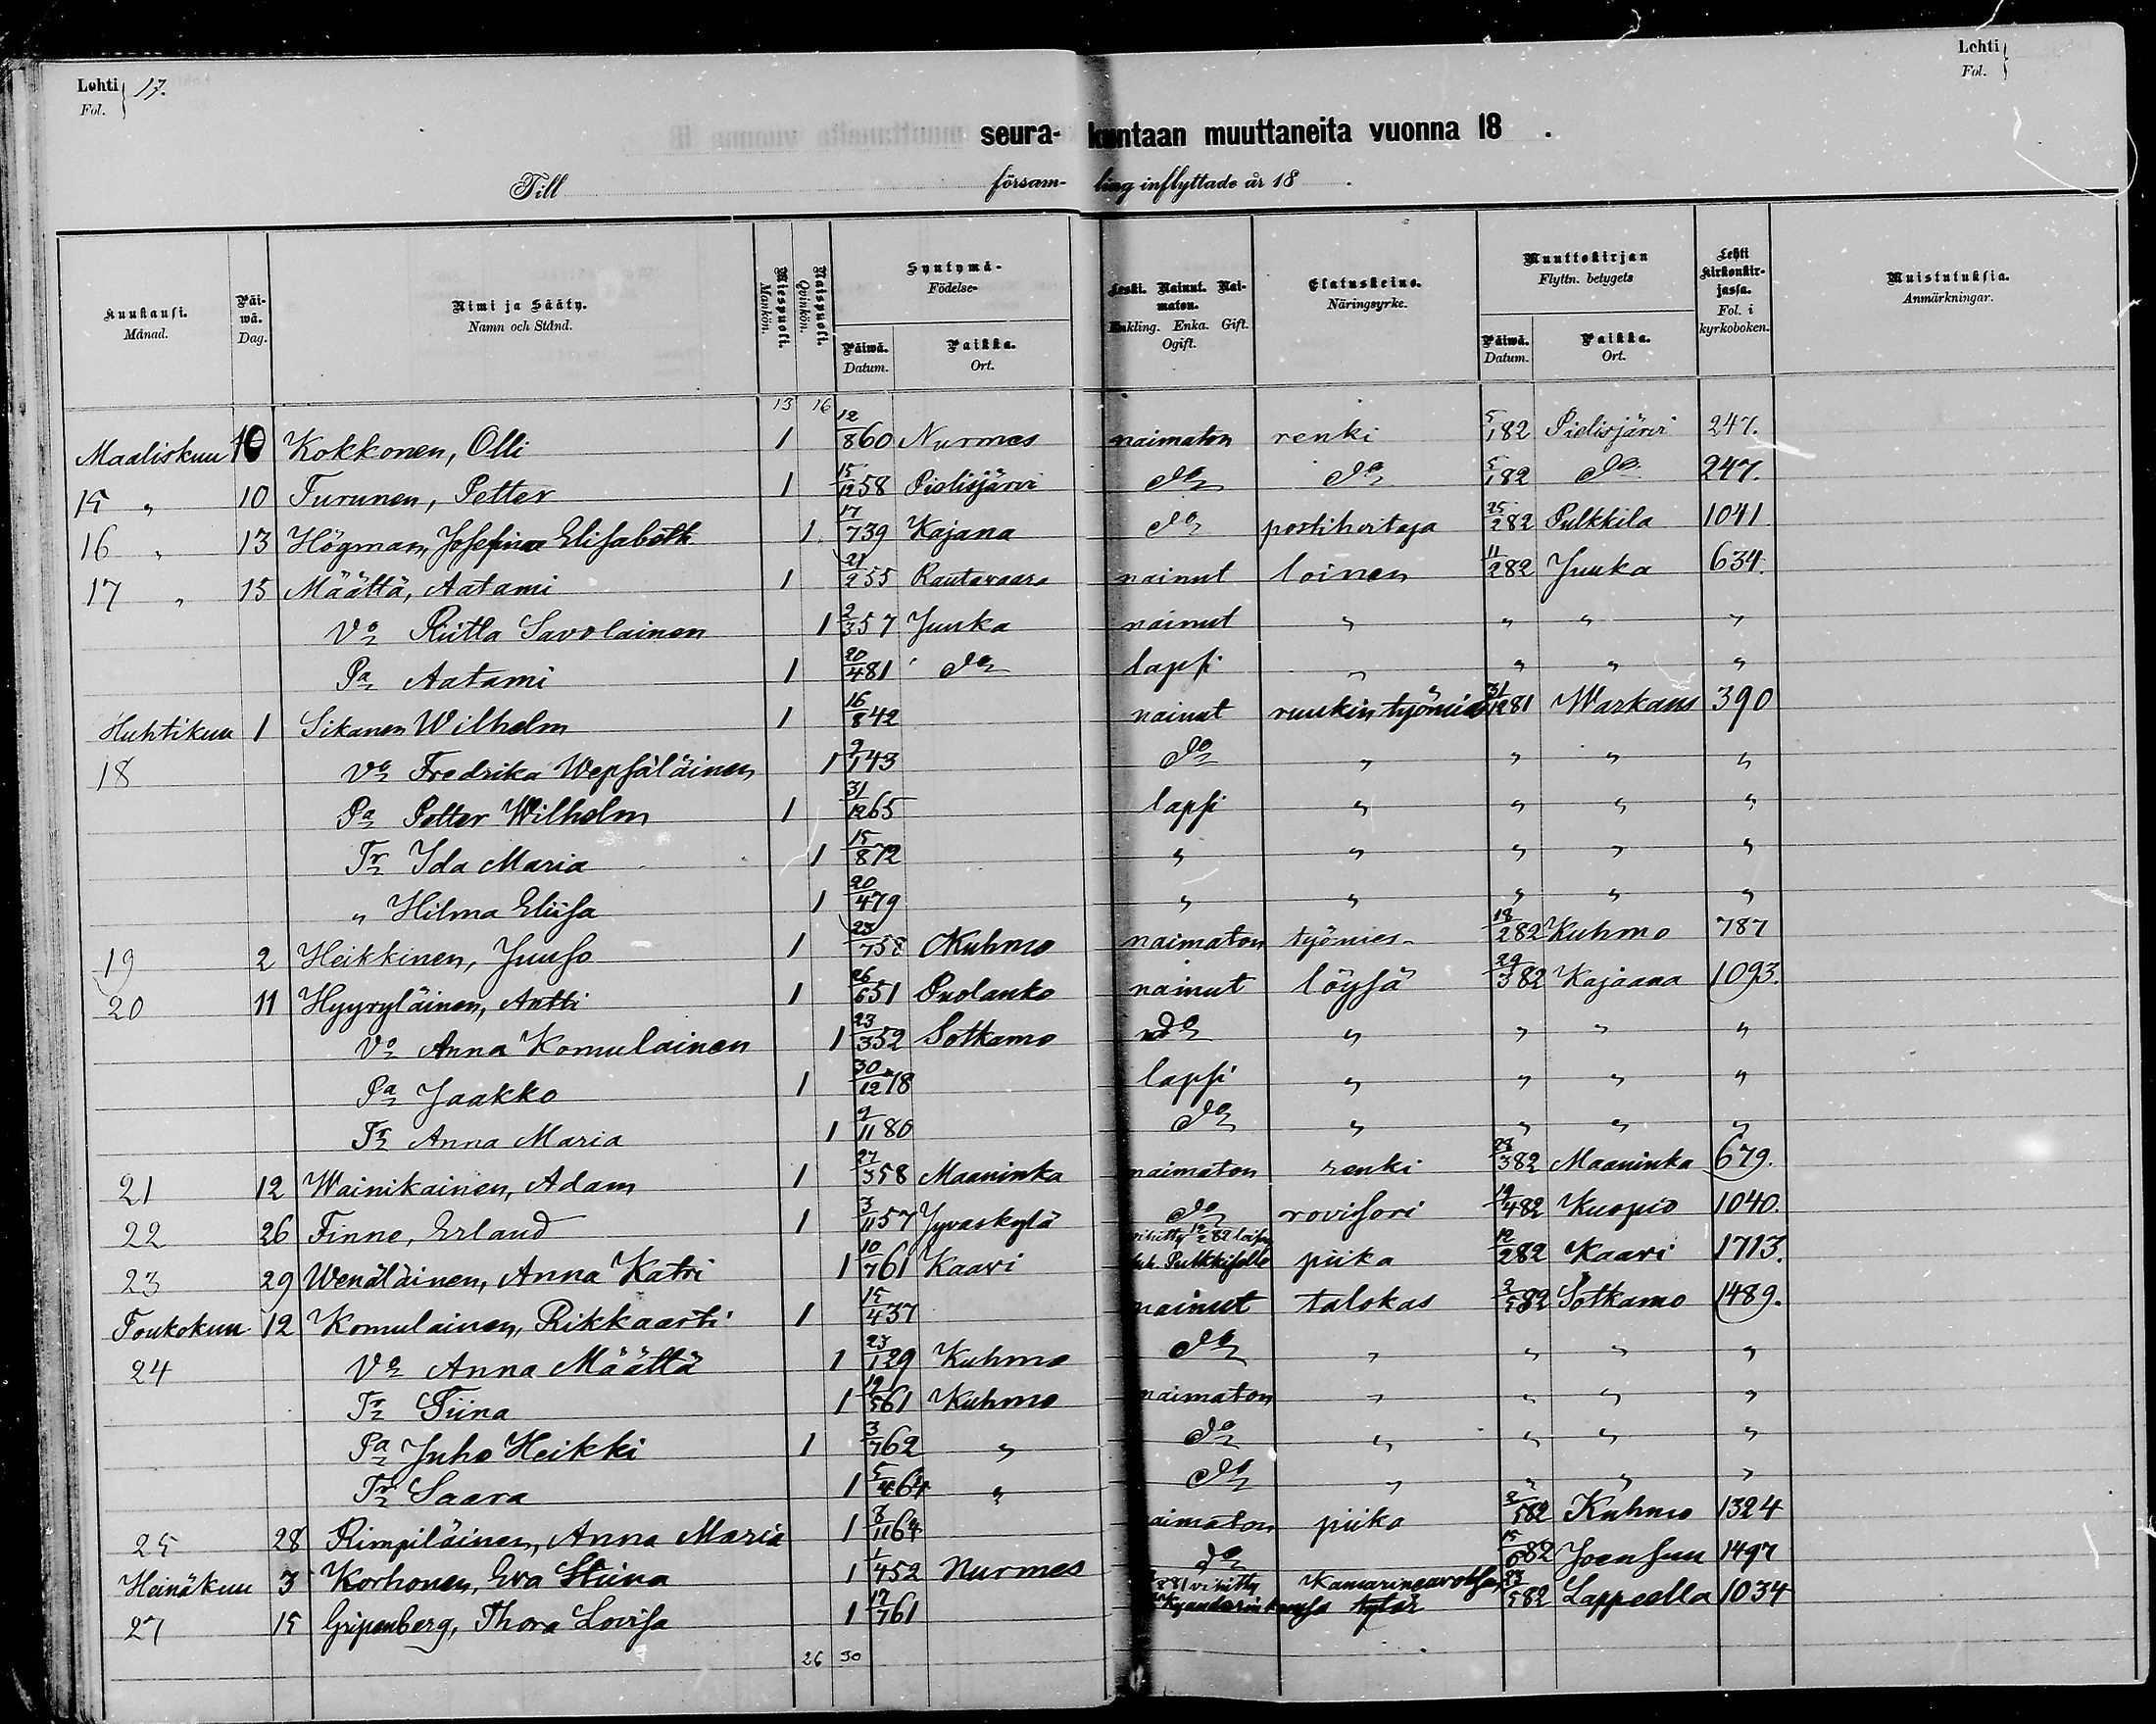 Lehti } 17.
Fol.
Lehti }
Fol.
seurakuntaan muuttaneita vuonna 18 .
Till församling inflyttade år 18 .
Kuukausi. Månad. | Päiwä. Dag. | Nimi ja Sääty. Namn och Stånd. | Miespuoli. Mankön. | Naispuoli. Qvinkön. | Syntymä- Födelse- Päiwä. Datum. | Paikka. Ort. | Leski. Nainut. Naimaton. Enkling. Enka. Gift. Ogift. | Elatuskeino. Näringsyrke. | Muuttokirjan Flyttn. betygets Päiwä. Datum. | Paikka. Ort. | Lehti kirkonkirjassa. Fol. i kyrkoboken. | Muistutuksia. Anmärkningar.
13 16
Maaliskuu 10 Kokkonen, Olli 1 12/8 60 Nurmes naimaton renki 5/1 82 Pielisjärvi 247.
15 " 10 Turunen, Petter 1 15/12 58 Pielisjärvi do do 5/1 82 do 247.
16 " 13 Högman, Josefina Elisabeth 1 17/7 39 Kajana do postihoitaja 25/2 82 Pulkkila 1041
17 " 15 Määttä, Aatami 1 21/2 55 Rautavaara nainut loinen 11/2 82 Juuka 634.
Vo Riitta Savolainen 1 2/3 57 Juuka nainut " " " "
Pa Aatami 1 20/4 81 do lapsi " " " "
Huhtikuu 1 Sikanen Wilhelm 1 16/8 42 nainut ruukin työmies 31/12 81 Warkaus 390
18 Vo Fredrika Wepsäläinen 1 9/1 43 do " " " "
Pa Petter Wilhelm 1 31/12 65 lapsi " " " "
Tr Ida Maria 1 15/8 72 " " " " "
" Hilma Eliisa 1 20/4 79 " " " " "
19 2 Heikkinen, Juuso 1 23/7 58 Kuhmo naimaton työmies 18/2 82 Kuhmo 787
20 11 Hyyryläinen, Antti 1 26/6 51 Puolanko nainut löysä 29/3 82 Kajaana 1093.
Vo Anna Komulainen 1 23/3 52 Sotkamo do " " " "
Pa Jaakko 1 30/12 78 lapsi " " " "
Tr Anna Maria 1 9/11 80 do " " " "
21 12 Wainikainen, Adam 1 27/3 58 Maaninka naimaton renki 28/3 82 Maaninka 679.
22 26 Finne, Erland 1 3/11 57 Jyvaskylä do rovisori 19/4 82 Kuopio 1040.
23 29 Wenäläinen, Anna Katri 1 10/7 61 Kaavi vihitty 12/2 82 Pulkkiselle piika 12/2 82 Kaavi 1713.
Toukokuu 12 Komulainen, Rikkaarti 1 15/4 37 nainut talokas 2/5 82 Sotkamo 1489.
24 Vo Anna Määttä 1 23/1 29 Kuhmo do " " " "
Tr Tiina 1 19/5 61 Kuhmo naimaton " " " "
Pa Juho Heikki 1 3/7 62 " do " " " "
Tr Saara 1 5/4 64 " do " " " "
25 28 Rimpiläinen, Anna Maria 1 8/11 64 naimaton piika 2/5 82 Kuhmo 1324
Heinäkuu 3 Korhonen, Eva Stiina 1 1/4 52 Nurmes do 15/6 82 Joensuu 1497
27 15 Gripenberg, Thora Lovisa 1 17/7 61 81 vihitty kanssa tytär 23/5 82 Lappeella 1034
26 30